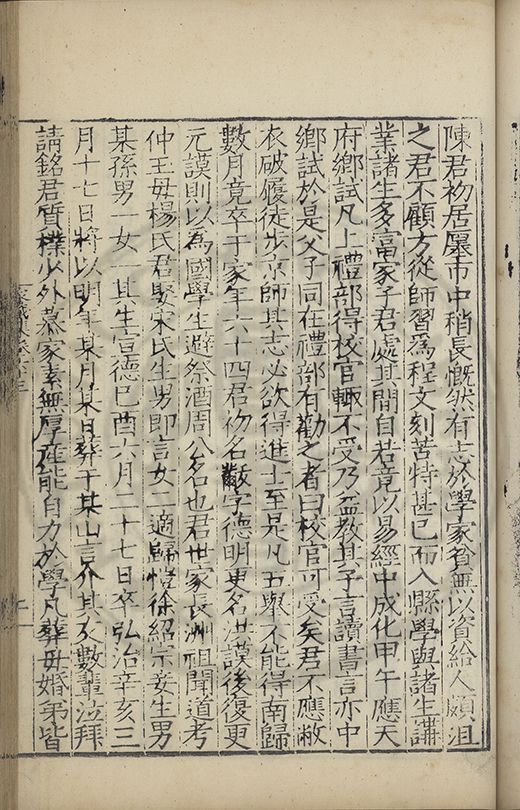 陳君初居廛市中稍長慨然有志於學家貧無以資給人頗沮
之君不顧方從師習為程文刻苦特甚已而入縣學與諸生講
業諸生多富家子君處其間自若竟以易經中成化甲午應天
府鄉試凡上禮部得校官輙不受乃益教其子言讀書言亦中
鄉試於是父子同在禮部有勸之者曰校官可受矣君不應敝
衣破履徒步京師其志必欲得進士至是凡五舉不能得南歸
數月竟卒于家年六十四君初名黻字德明更名洪謨後復更
元謨則以為國學生避祭酒周公名也君世家長洲祖聞道考
仲玉母楊氏君娶宋氏生男即言女二適歸愷徐紹宗妾生男
某孫男一女一其生宣德己酉六月二十七日卒弘治辛亥三
月十七日將以明年某月某日葬于某山言介其友數輩泣拜
請銘君質樸少外慕家素無厚產能自力於學凡葬母婚弟皆